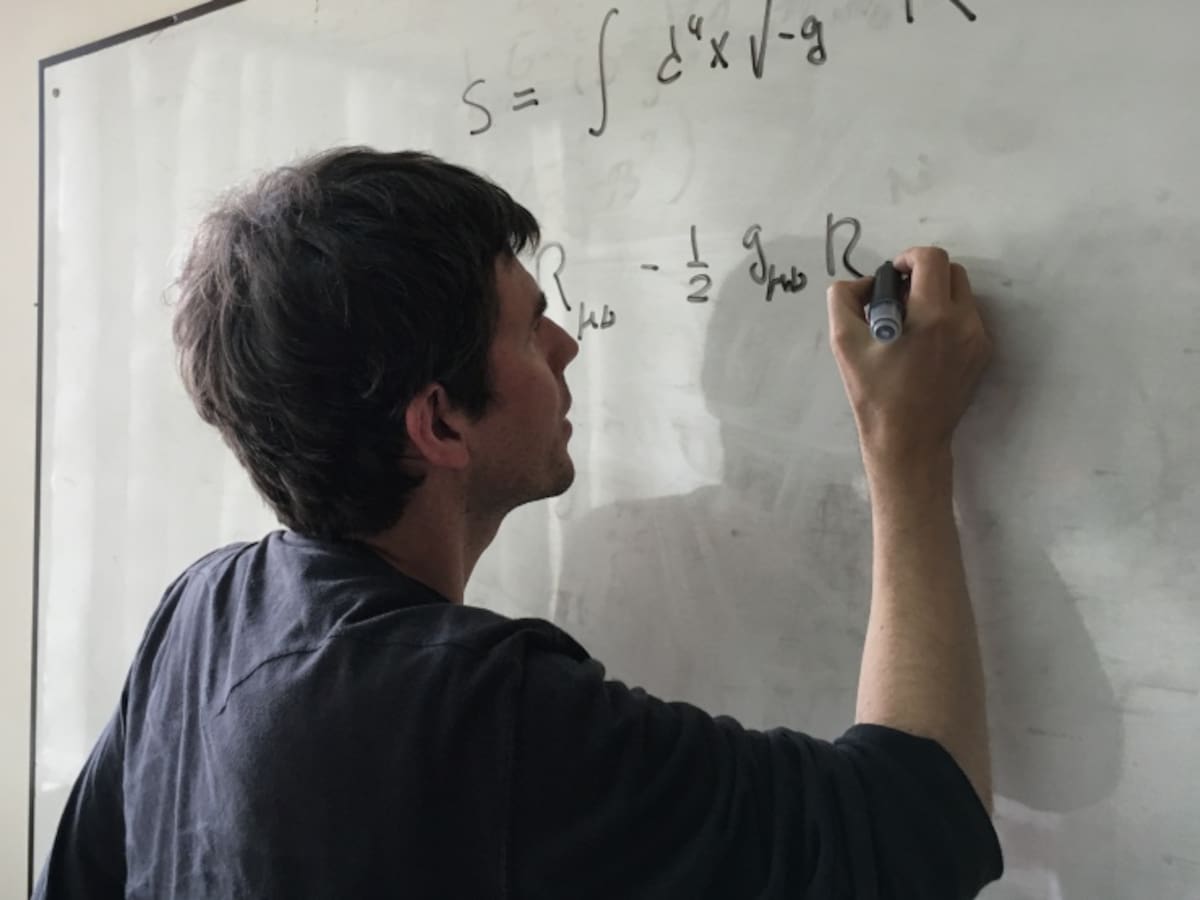 S = ∫ d⁴x √-g R
R_μν - 1/2 g_μν R